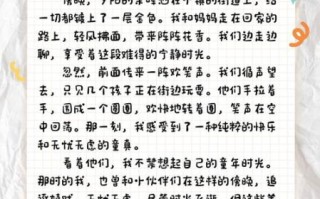 给
一切都铺上了一层金色。我和妈妈走在回家的
路上，轻风拂面，带来阵阵花香。我们边走边
聊，享受着这段难得的宁静时光。
忽然，前面传来一阵欢笑声。我们循声望
去，只见几个孩子正在街边玩耍。他们手拉着
手，围成一个圆圈，欢快地转着圈，笑声在空
中回荡。那一刻，我感受到了一种纯粹的快乐
和无忧无虑的童真。
看着他们，我不禁想起自己的童年时光。
那时的我，也曾和小伙伴们在这样的傍晚，追